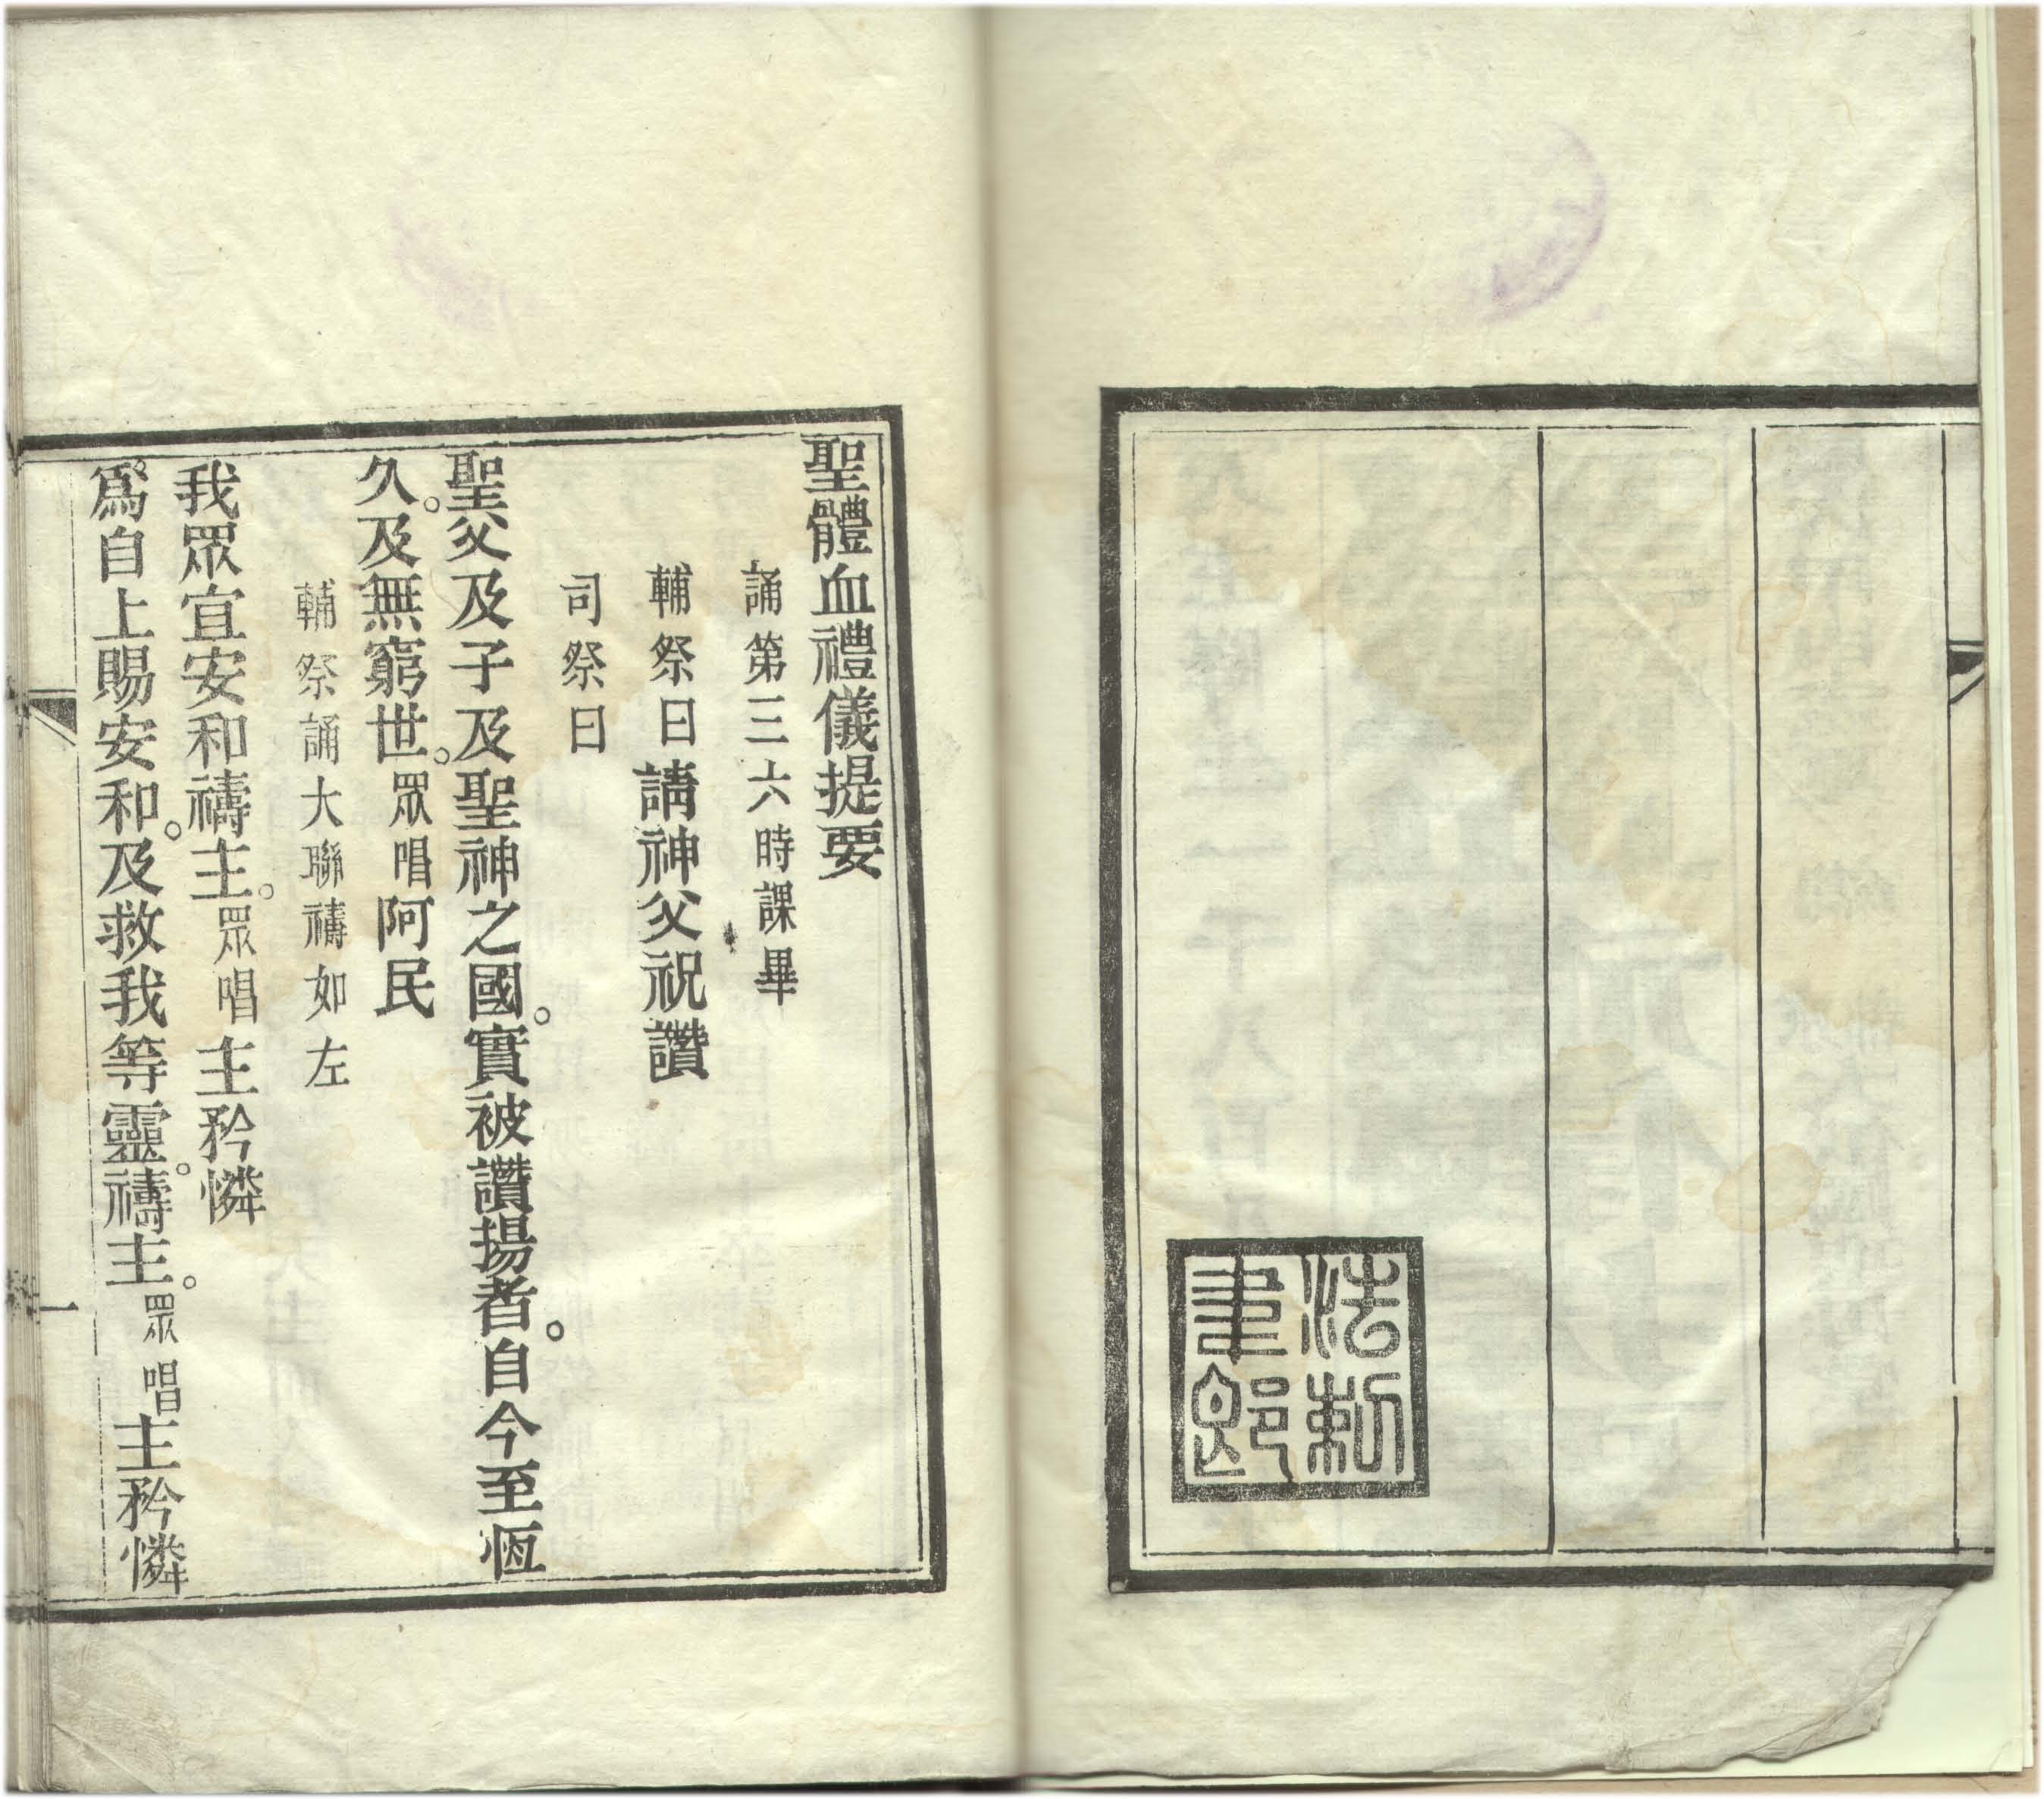 聖體血禮儀提要
誦第三六時課畢
輔祭曰請神父祝讚
司祭曰
聖父及子及聖神之國。實被讚揚者。自今至恆
久。及無窮世。眾唱阿民
輔祭誦大聯禱如左
我眾宜安和禱主。眾唱主矜憐
爲自上賜安和。及救我等靈。禱主。眾唱主矜憐
一